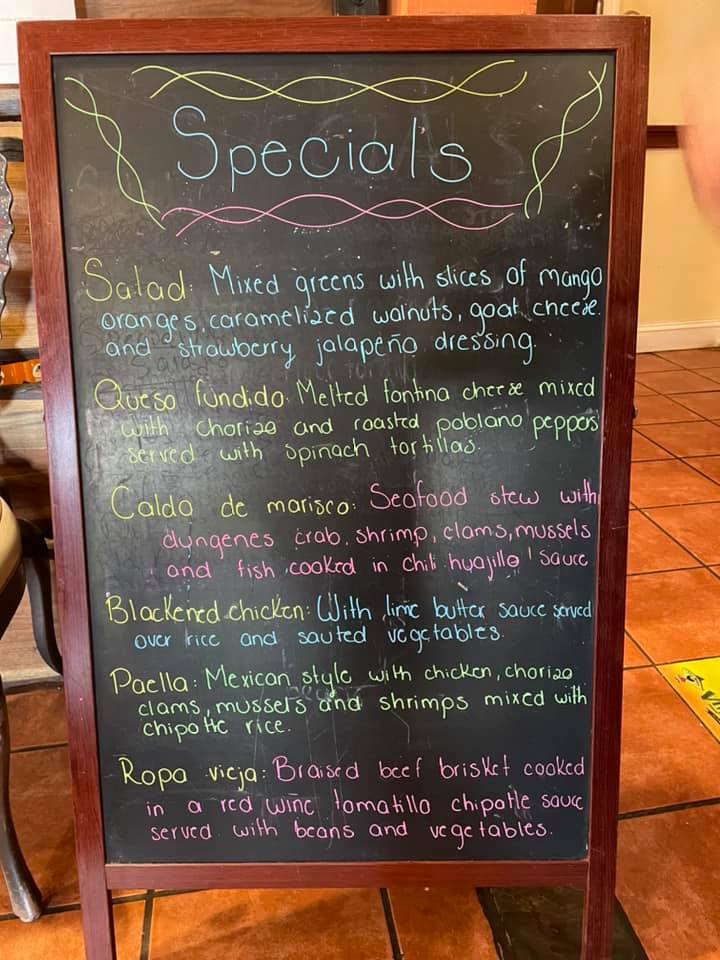 Specials
Salad: Mixed greens with slices of mango
oranges, caramelized walnuts, goat cheese.
and strawberry jalapeño dressing.
Queso fundido: Melted fontina cheese mixed
with chorizo and roasted poblano peppers
served with spinach tortillas.
Caldo de marisco: Seafood stew with
dungenes crab, shrimp, clams, mussels
and fish cooked in chili huajillo sauce
Blackened chicken: With lime butter sauce served
over rice and sauted vegetables.
Paella: Mexican style with chicken, chorizo
clams, mussels and shrimps mixed with
chipotle rice.
Ropa vieja: Braised beef brisket cooked
in a red wine tomatillo chipotle sauce
served with beans and vegetables.